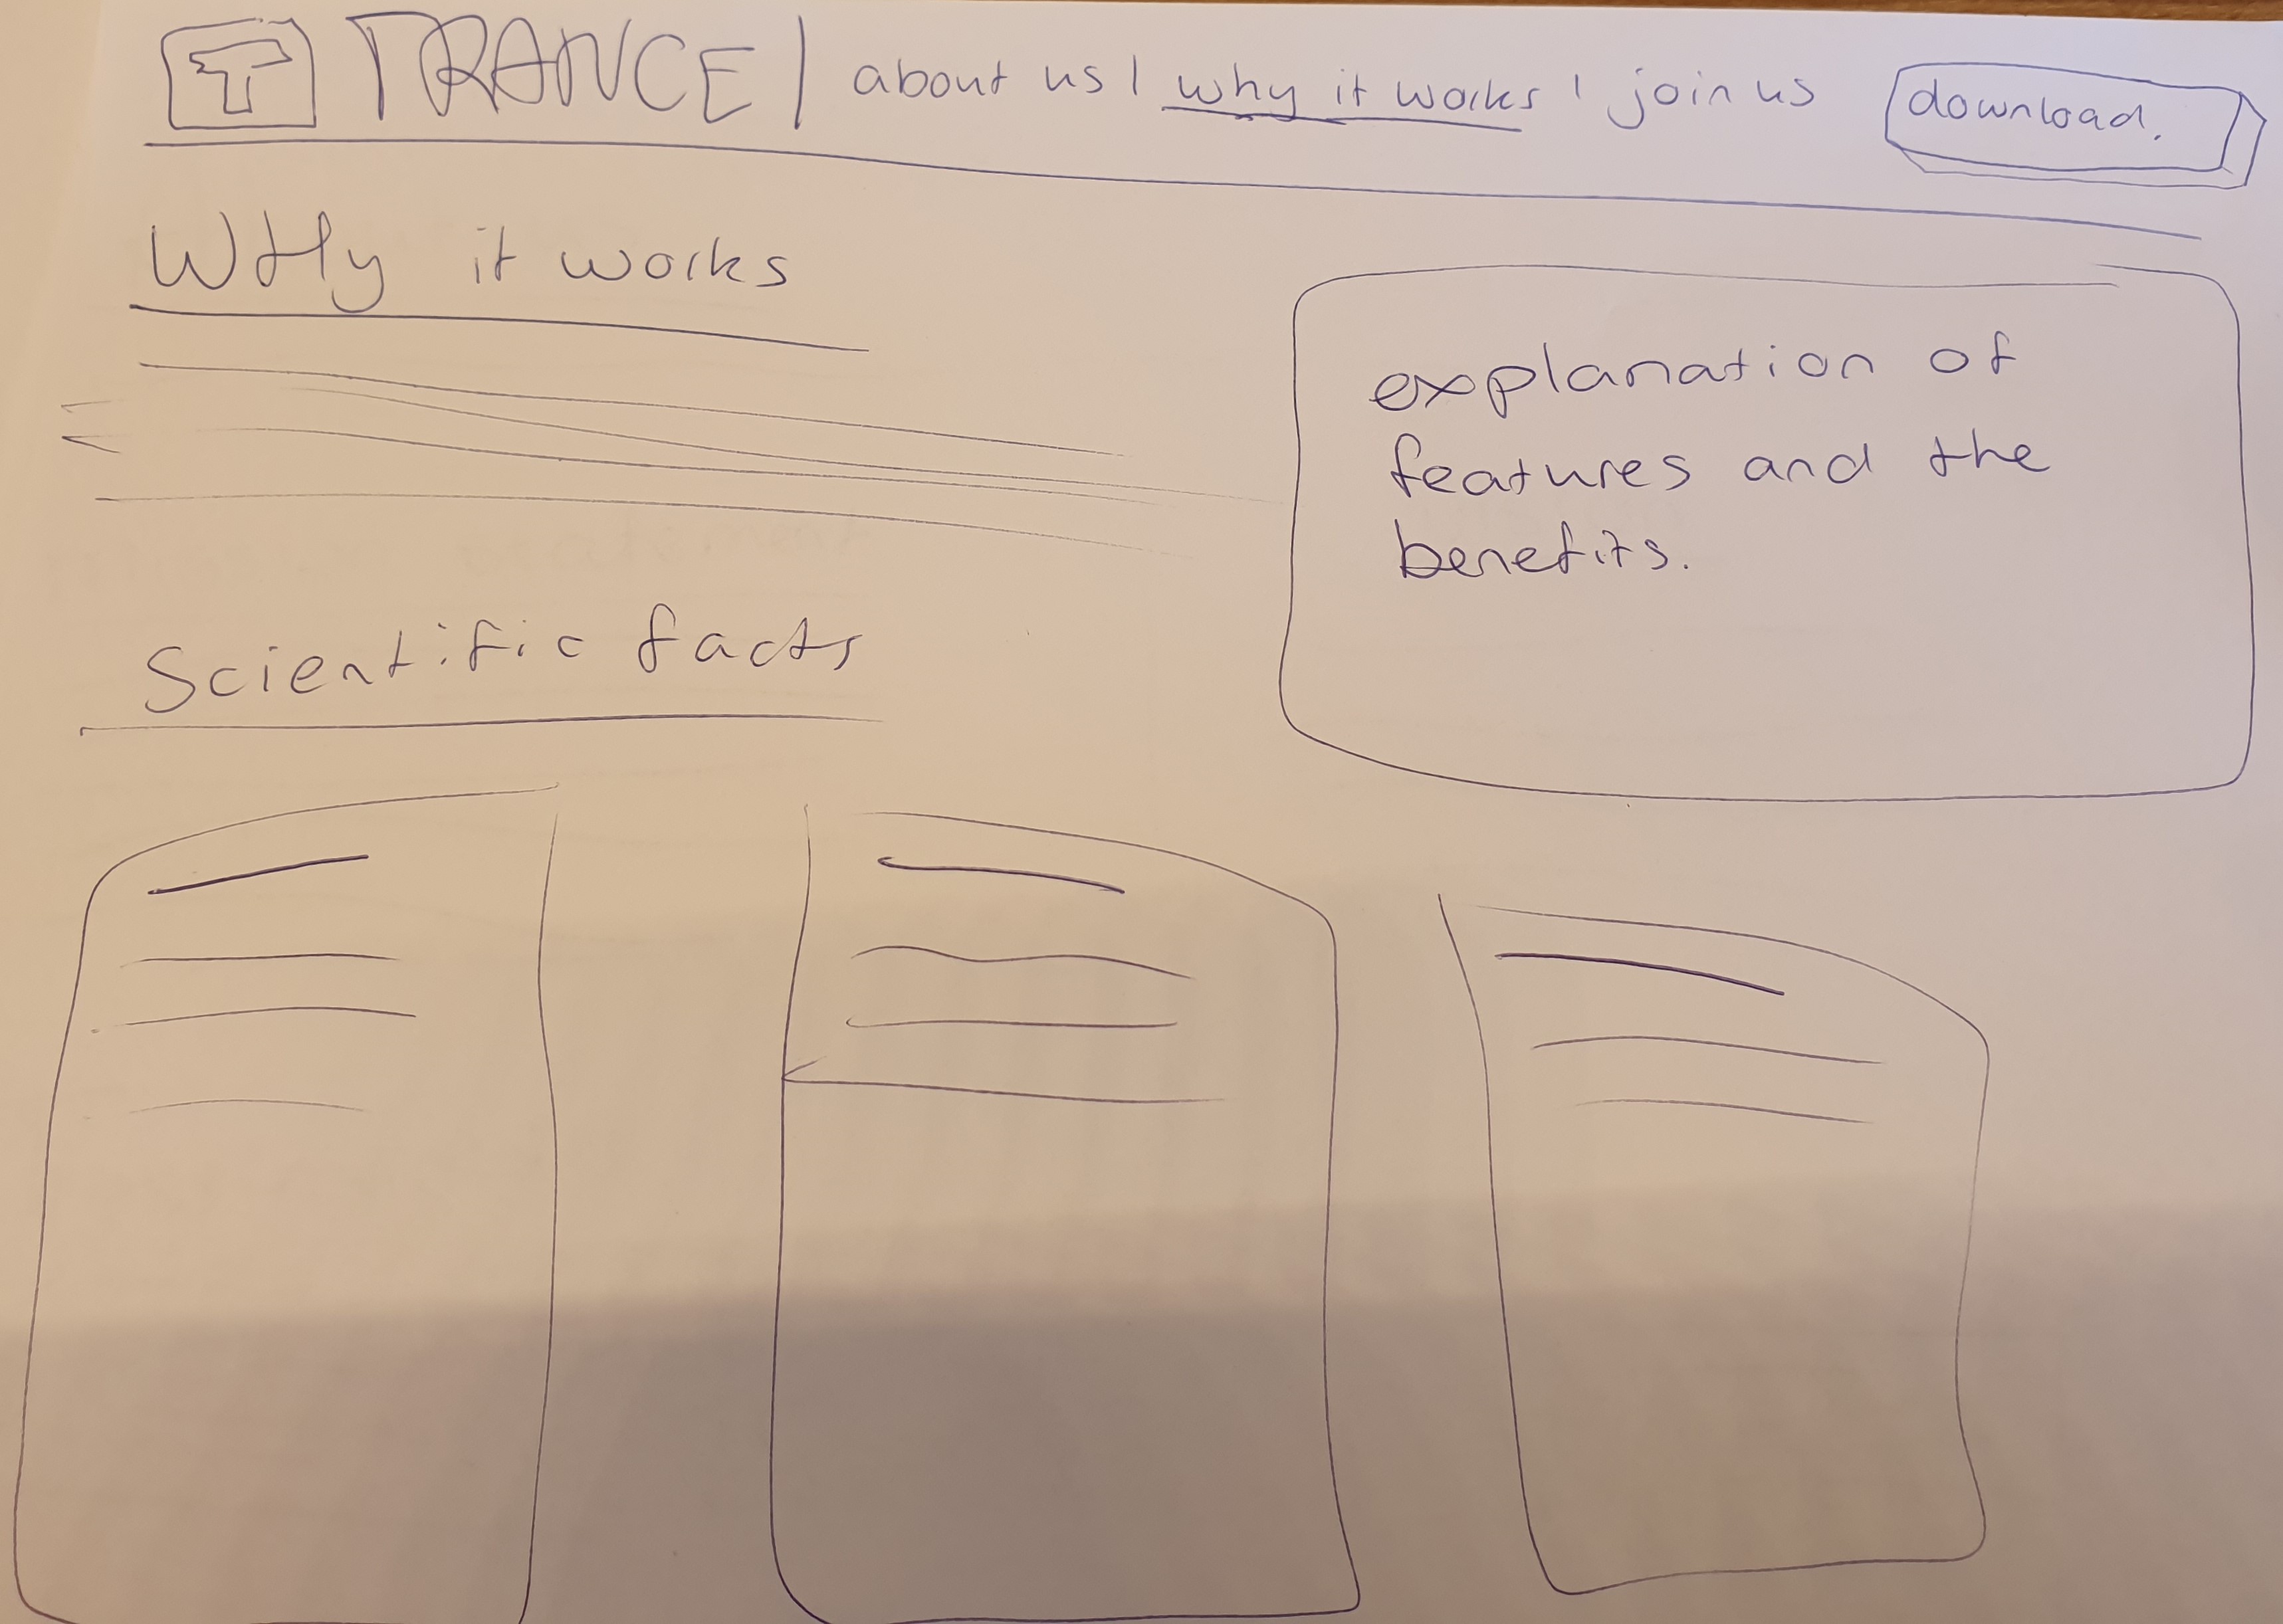 T TRANCE | about us | why it works | join us download.
WHy it works
explanation of
features and the
benefits.
Scientific facts